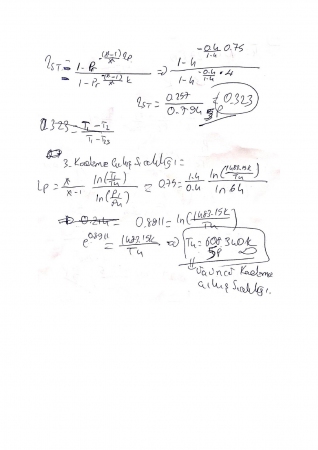 η_ST = (1 - Pr^(-(k-1)ηp/k)) / (1 - Pr^(-(k-1)/k)) => (1 - 4^(-0.4/1.4 0.75)) / (1 - 4^(-0.4/1.4 · 4))
η_ST = 0.257 / 0.794 0.323
0.323 = (T1 - T2) / (T1 - T2s)
3. Kademe Çıkış Sıcaklığı:
ηp = k/(k-1) ln(T1/T4) / ln(P1/P4) = 0.75 = 1.4/0.4 ln(1483.15K/T4) / ln 64
= 0.8911 = ln(1483.15K/T4)
e^0.8911 = 1483.15K/T4 => T4 = 608.340K
Üçüncü Kademe
çıkış sıcaklığı.